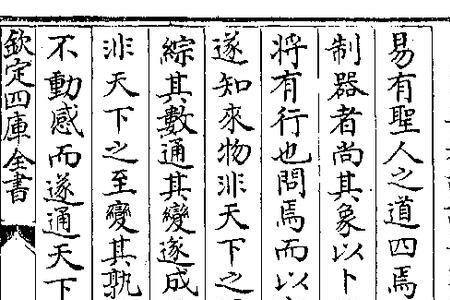 易有聖人之道四焉
制器者尚其象以卜
將有行也問焉而以
遂知來物非天下之
綜其數通其變遂成
非天下之至變其孰
不動感而遂通天下
欽定四庫全書